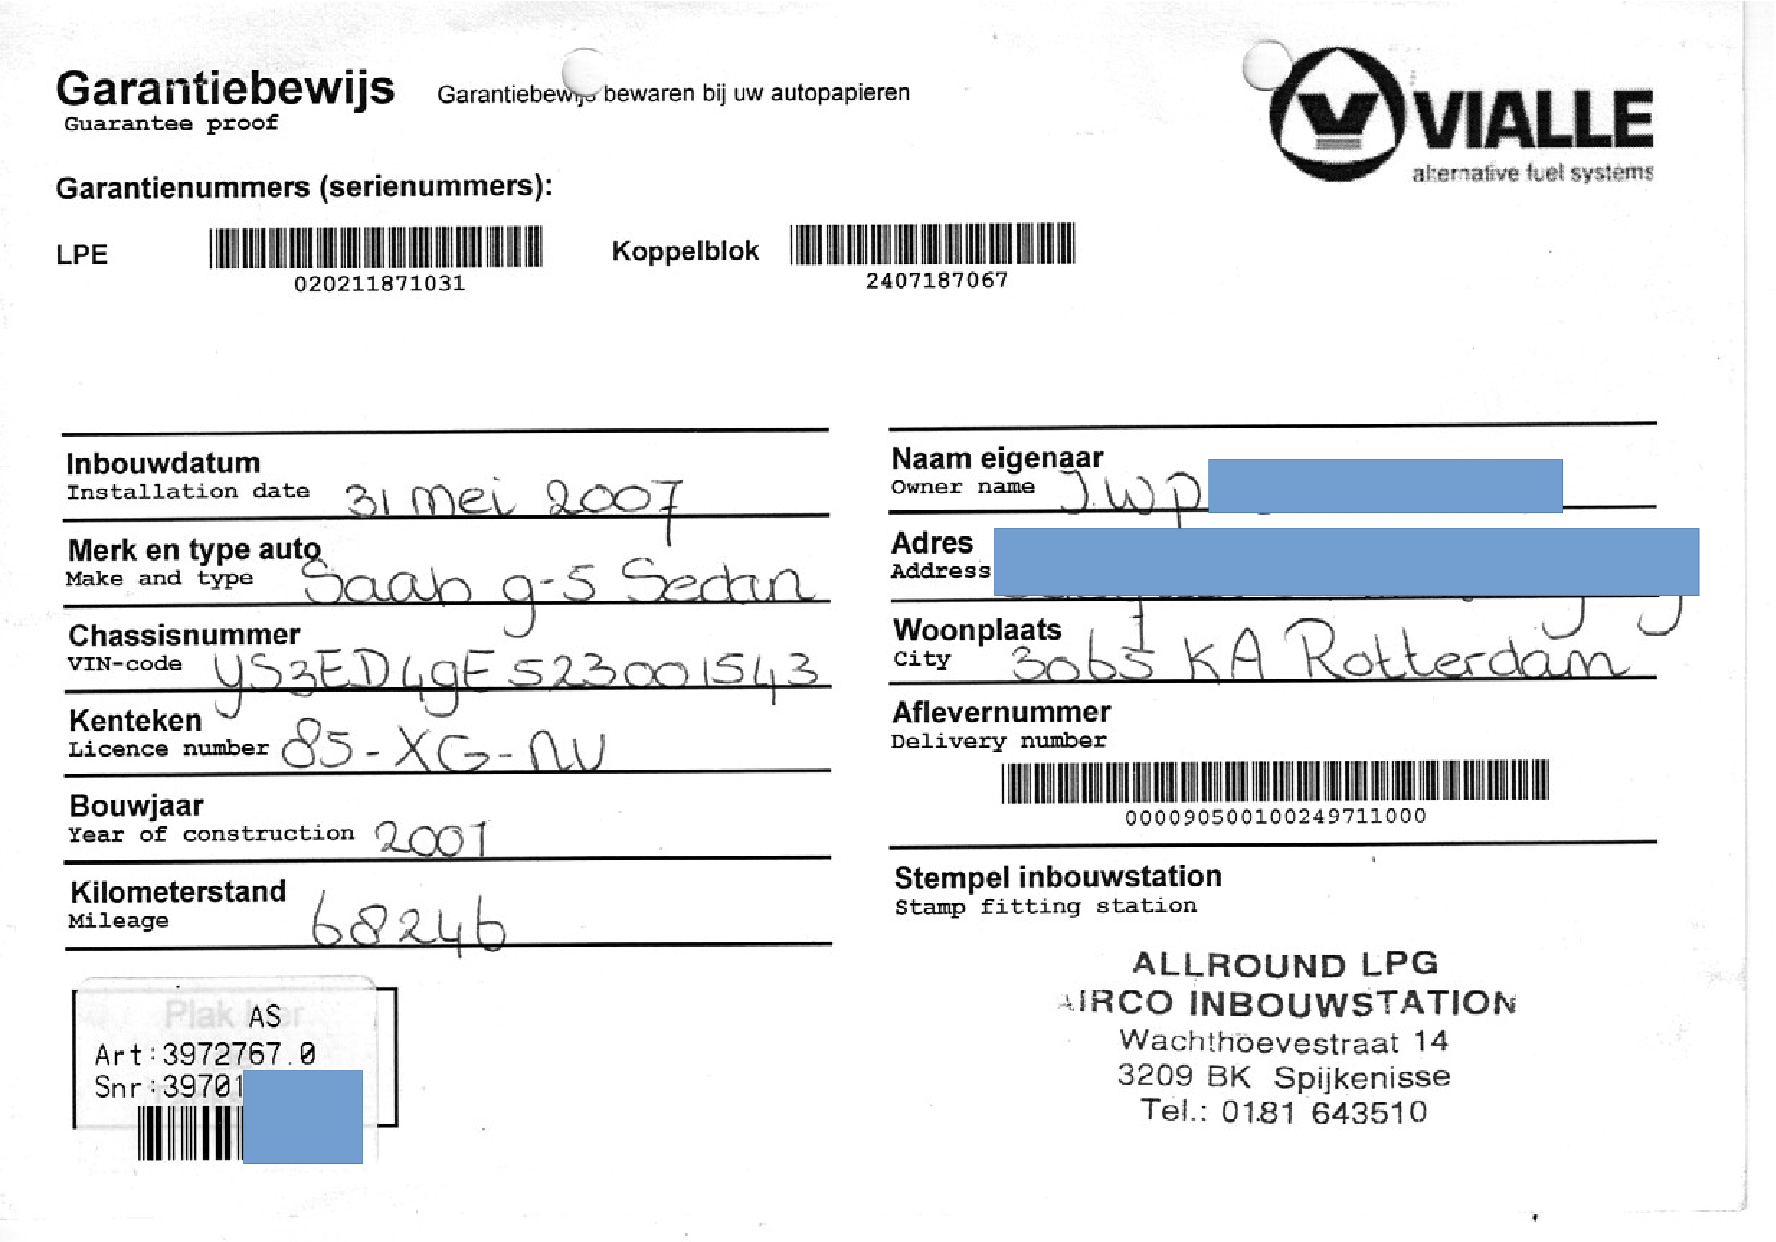 Garantiebewijs
Guarantee proof
Garantiebewijs bewaren bij uw autopapieren
VIALLE
alternative fuel systems
Garantienummers (serienummers):
LPE
020211871031
Koppelblok
2407187067
Inbouwdatum
Installation date 31 mei 2007
Merk en type auto
Make and type Saab 9-5 Sedan
Chassisnummer
VIN-code YS3ED49E523001543
Kenteken
Licence number 85-XG-NU
Bouwjaar
Year of construction 2001
Kilometerstand
Mileage 68246
Plak hier
AS
Art:3972767.0
Snr:39701
Naam eigenaar
Owner name J.W.P
Adres
Address
Woonplaats
City 3065 KA Rotterdam
Aflevernummer
Delivery number
000090500100249711000
Stempel inbouwstation
Stamp fitting station
ALLROUND LPG
AIRCO INBOUWSTATION
Wachthoevestraat 14
3209 BK Spijkenisse
Tel.: 0181 643510